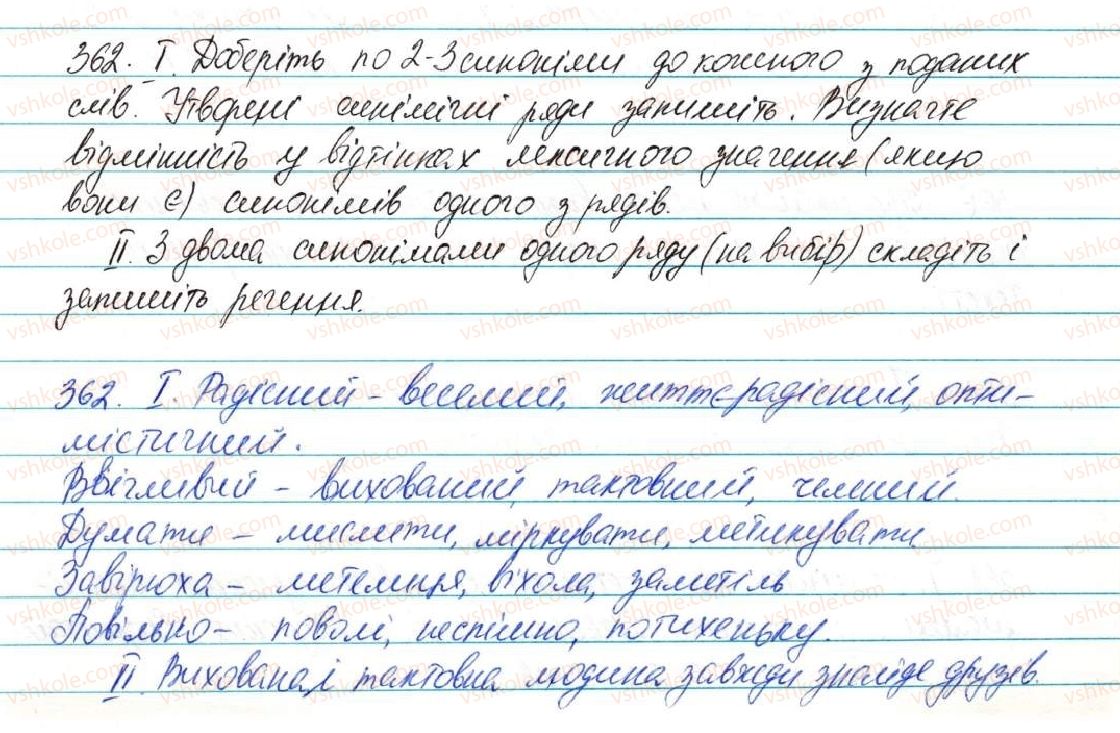 362. І. Доберіть по 2-3 синоніми до кожного з поданих
слів. Утворені синонімічні ряди запишіть. Визначте
відмінність у відтінках лексичного значення (якщо
вони є) синонімів одного з рядів.
ІІ. З двома синонімами одного ряду (на вибір) складіть і
запишіть речення.
362. І. Радісний – веселий, життєрадісний, опти-
містичний.
Ввічливий – вихований, тактовний, чемний.
Думати – мислити, міркувати, метикувати.
Завірюха – метелиця, віхола, заметіль
Повільно – поволі, неспішно, потихеньку.
ІІ. Вихована і тактовна людина завжди знайде друзів.
vshkole.com